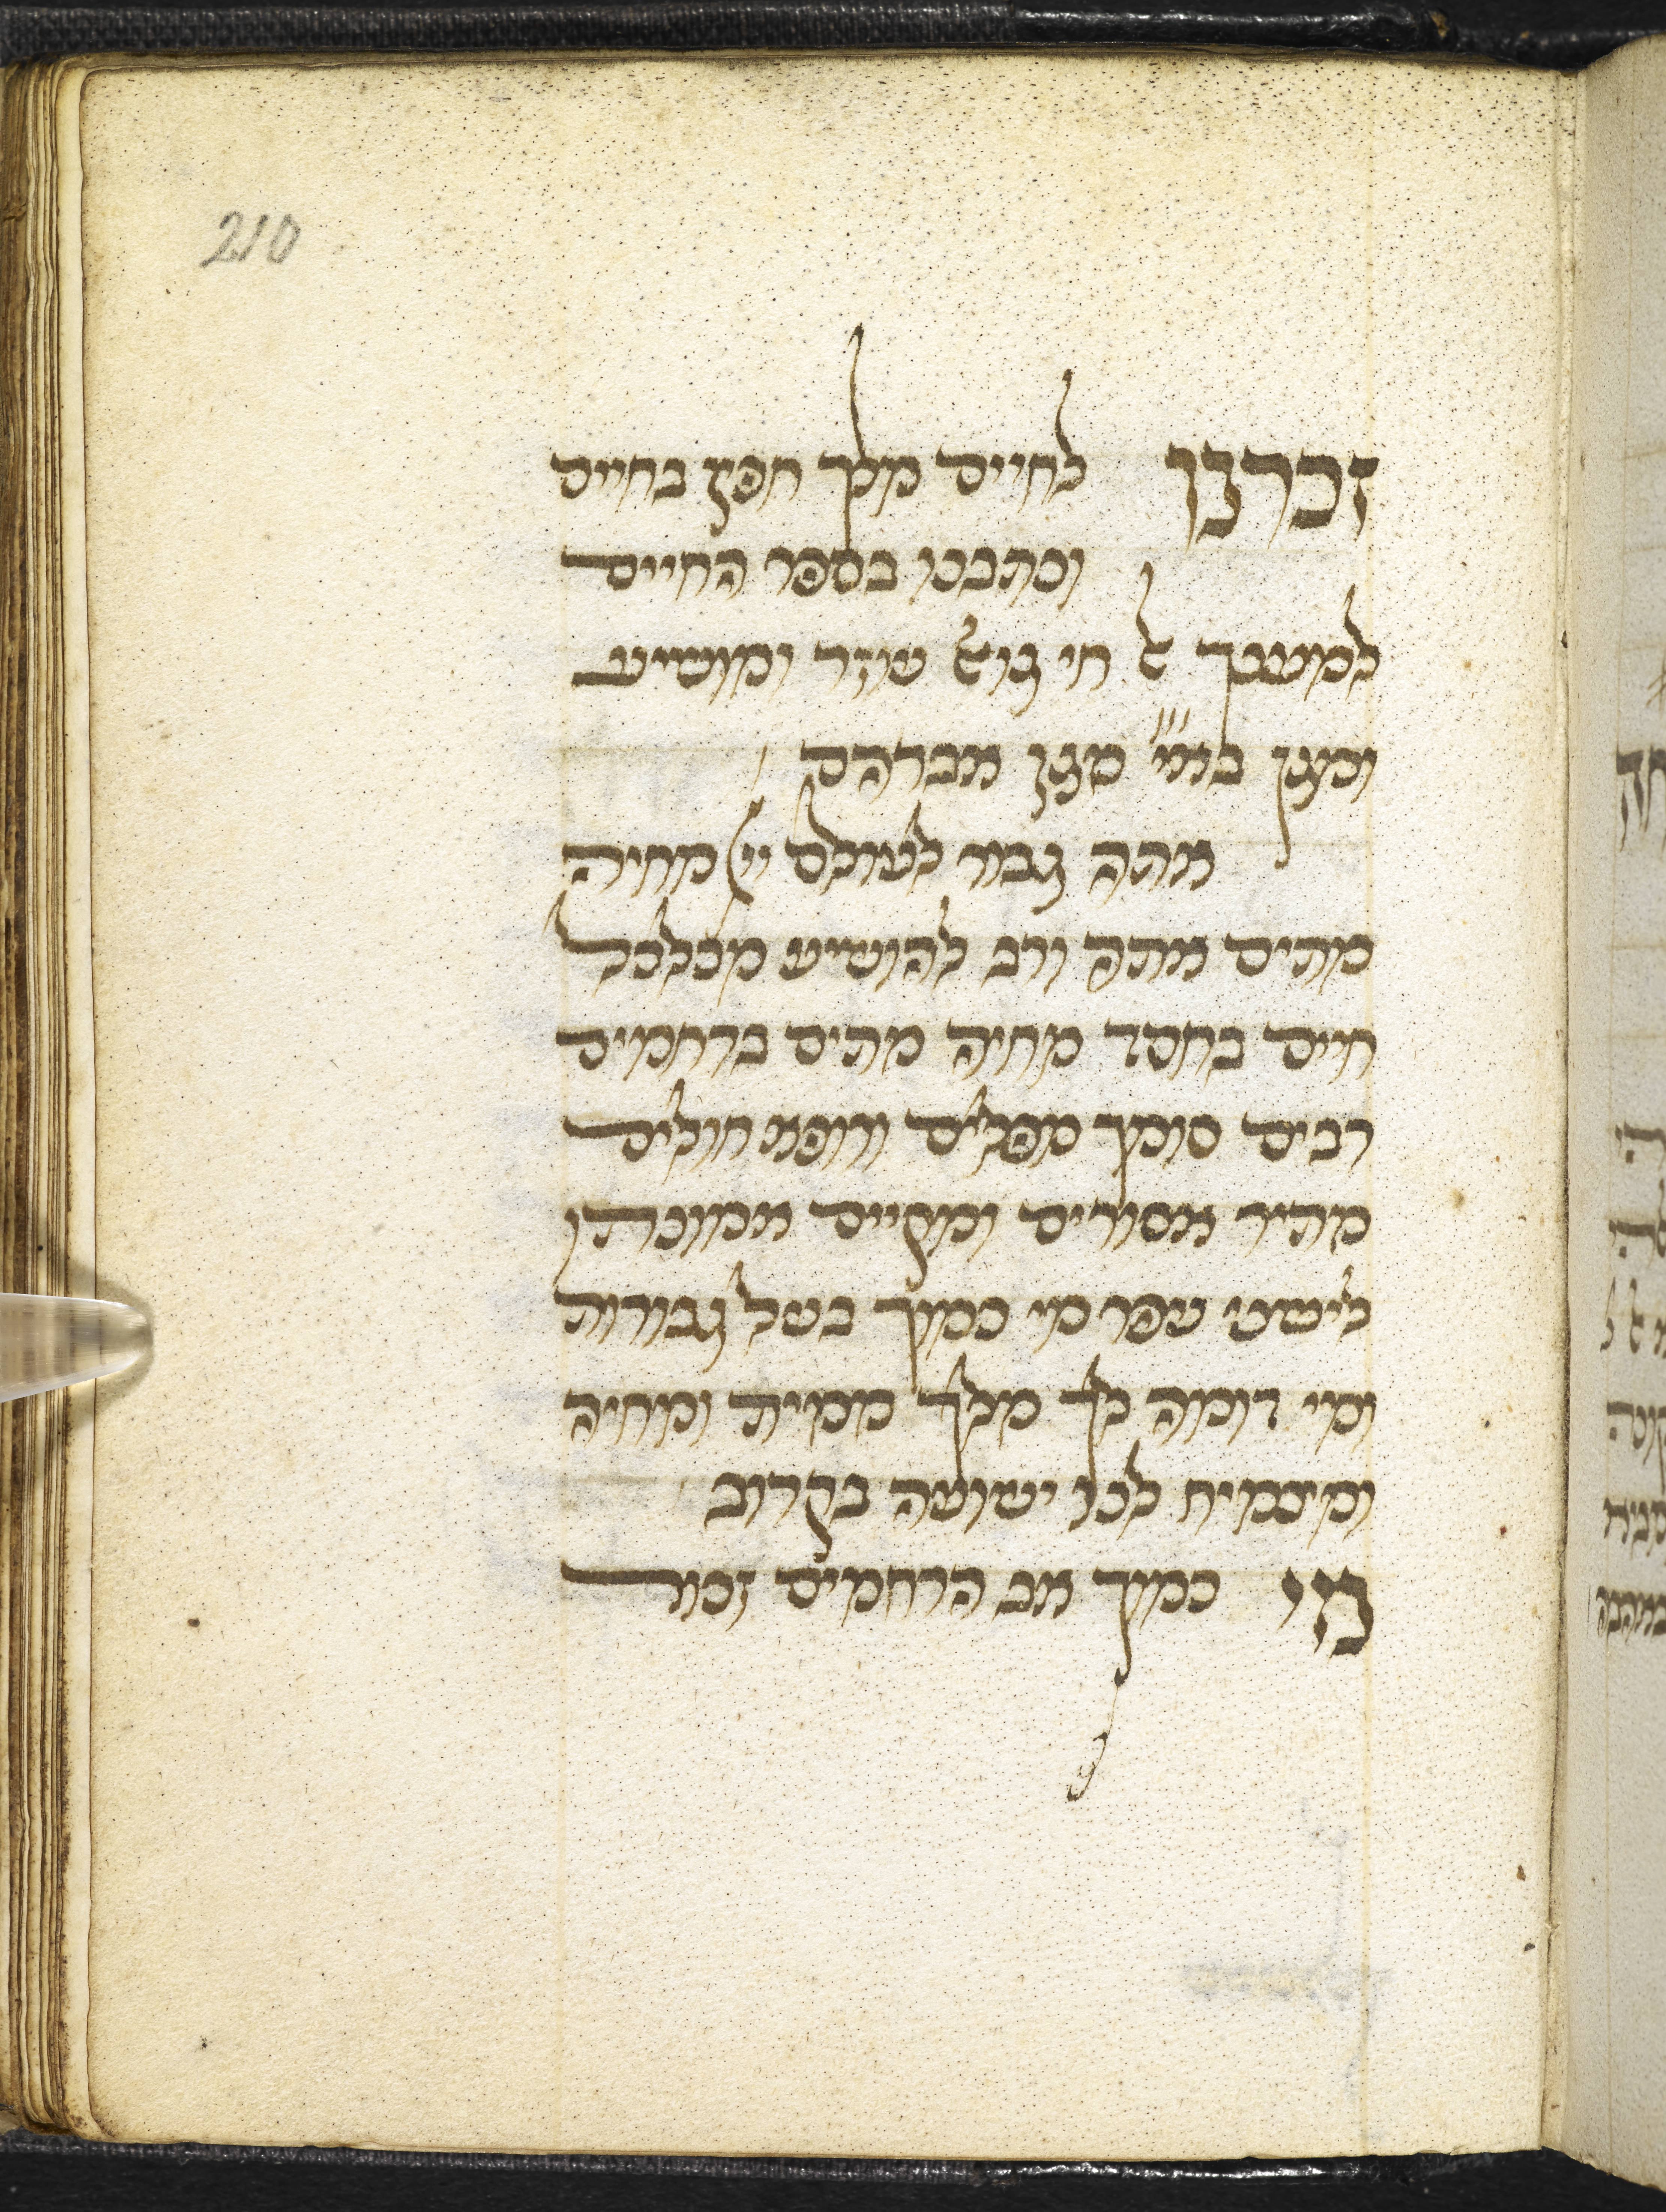 210
זכרנו לחיים מלך חפץ בחיים
וכתבנו בספר החיים
למענך אל חי גואל עוזר ומושיע
ומגן בא״י מגן אברהם
אתה גבור לעולם יי׳ מחיה
מתים אתה ורב להושיע מכלכל
חיים בחסד מחיה מתים ברחמים
רבים סומך נופלים ורופא חולים
מתיר אסורים ומקיים אמונתו
לישני עפר מי כמוך בעל גבורות
ומי דומה לך מלך ממית ומחיה
ומצמיח לנו ישועה בקרוב
מי כמוך אב הרחמים זכור